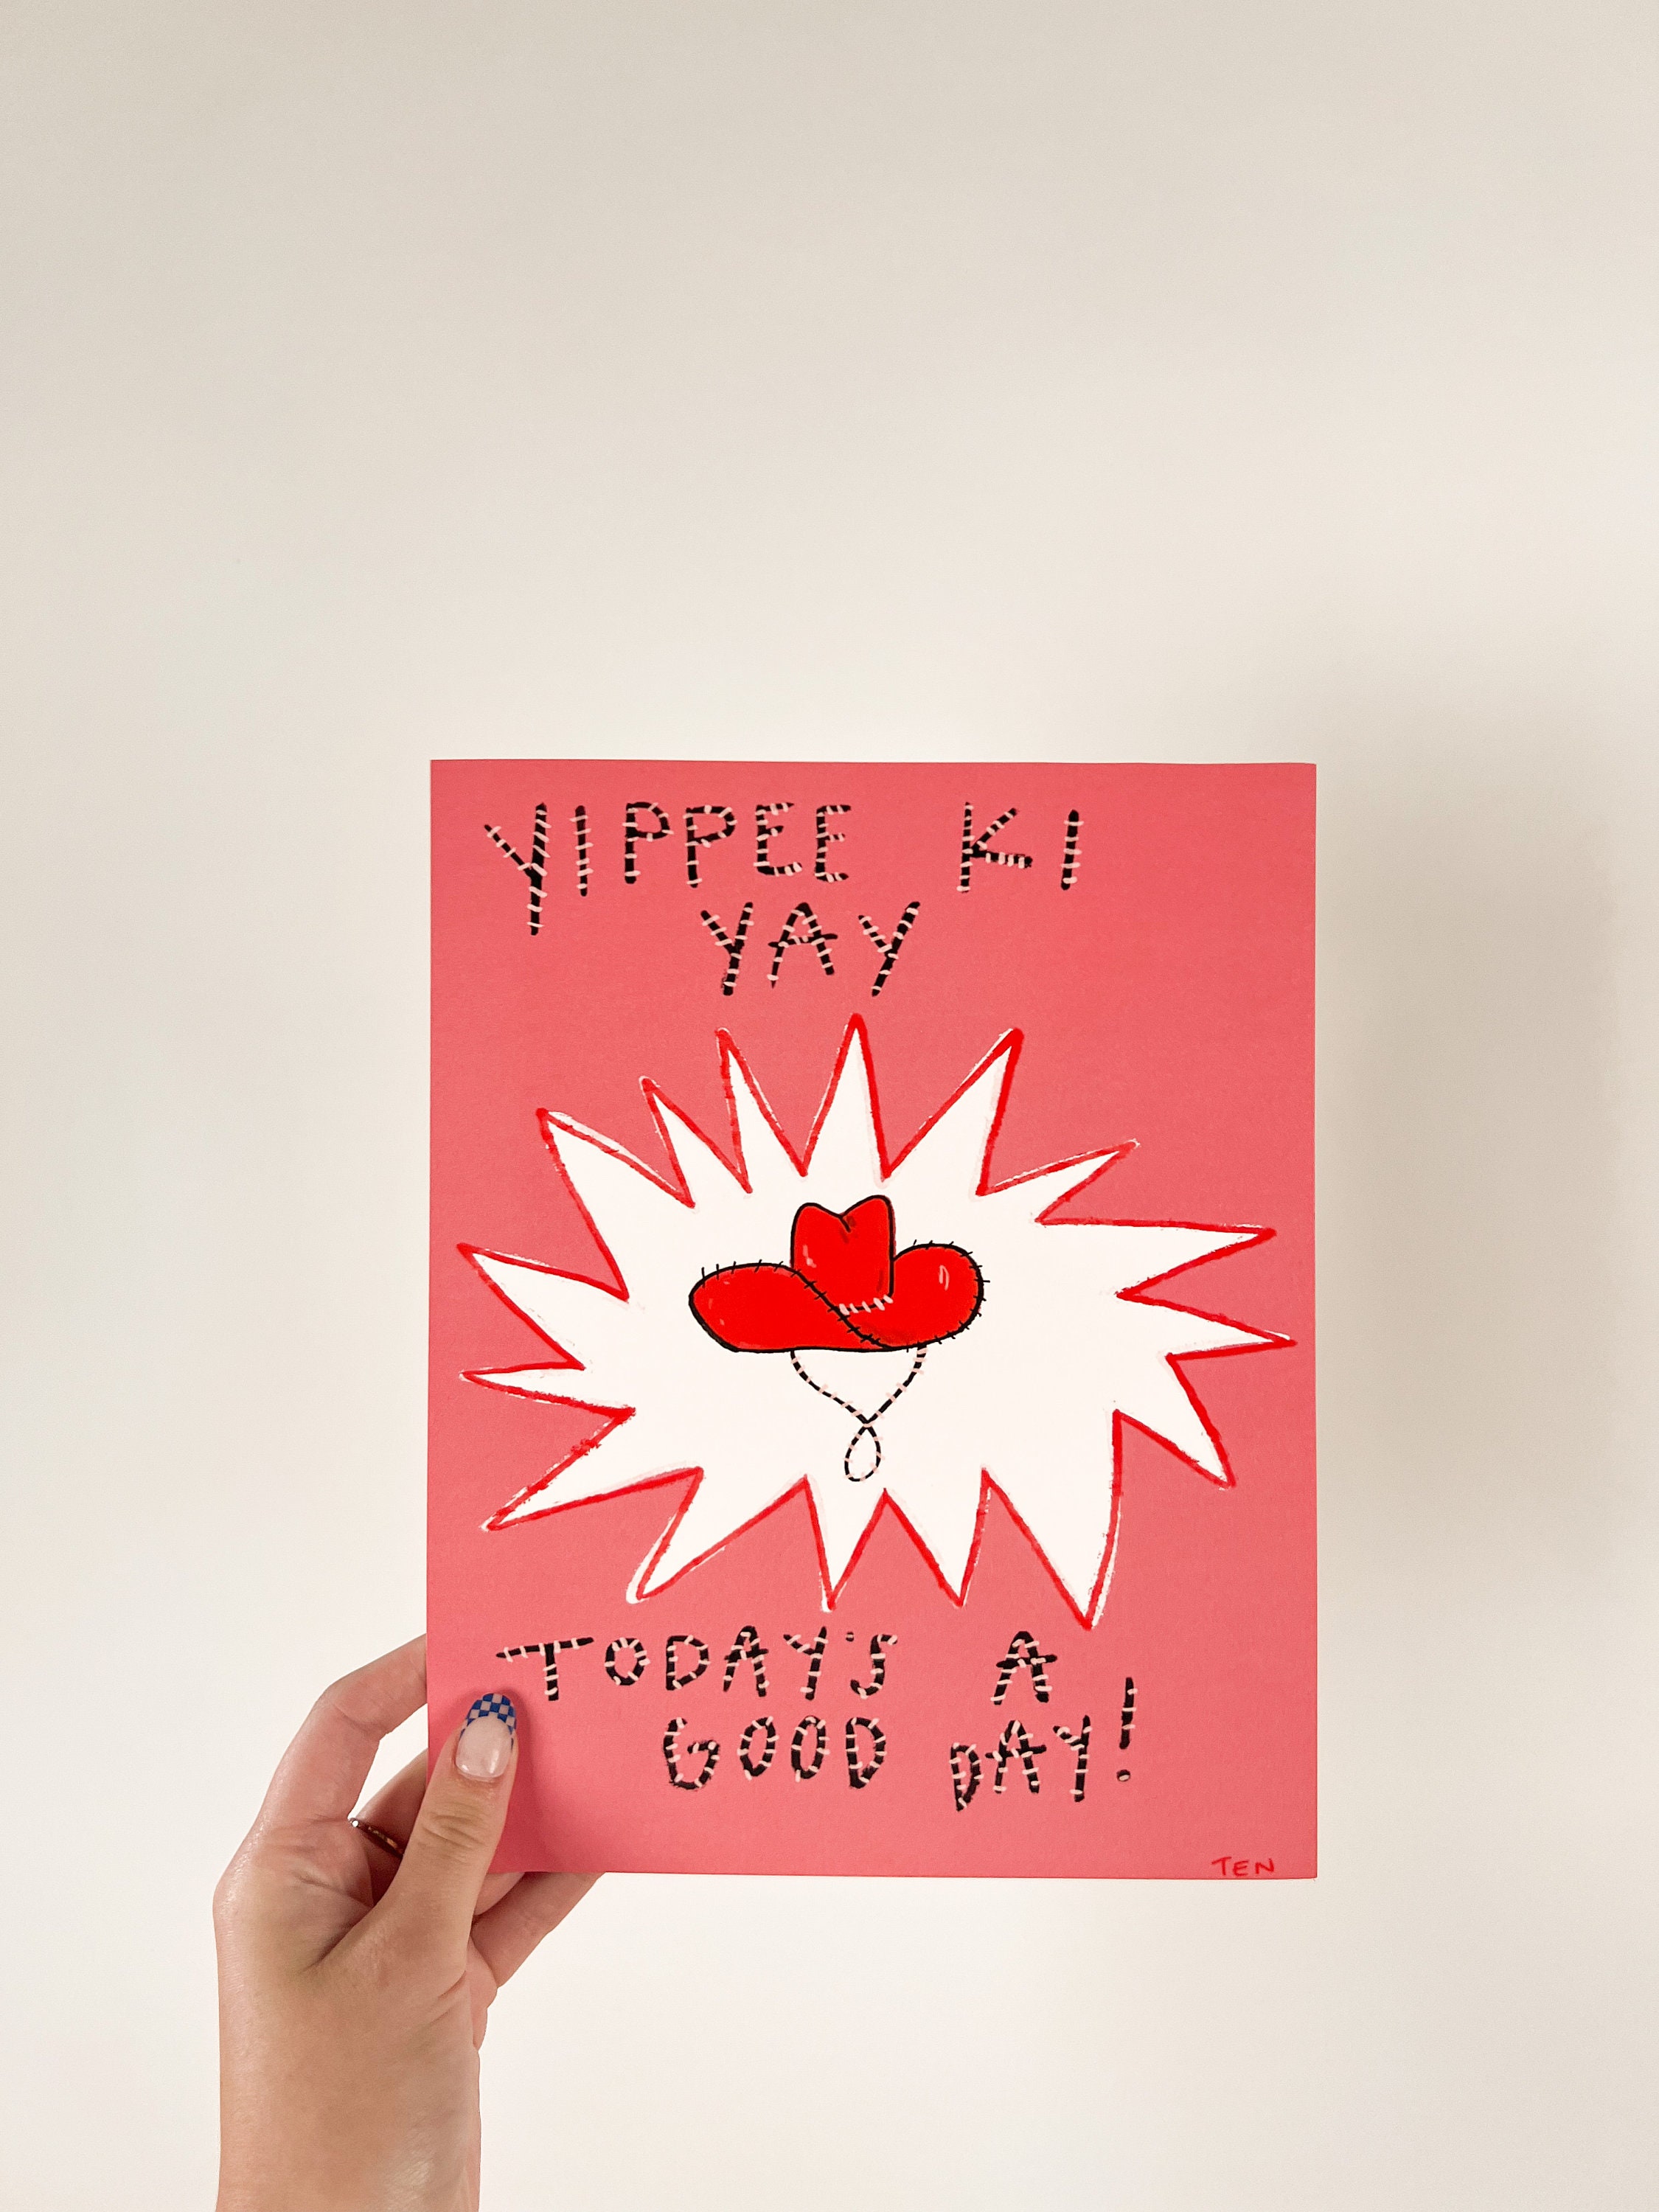 YIPPEE KI
YAY
TODAY'S A
GOOD DAY!
TEN